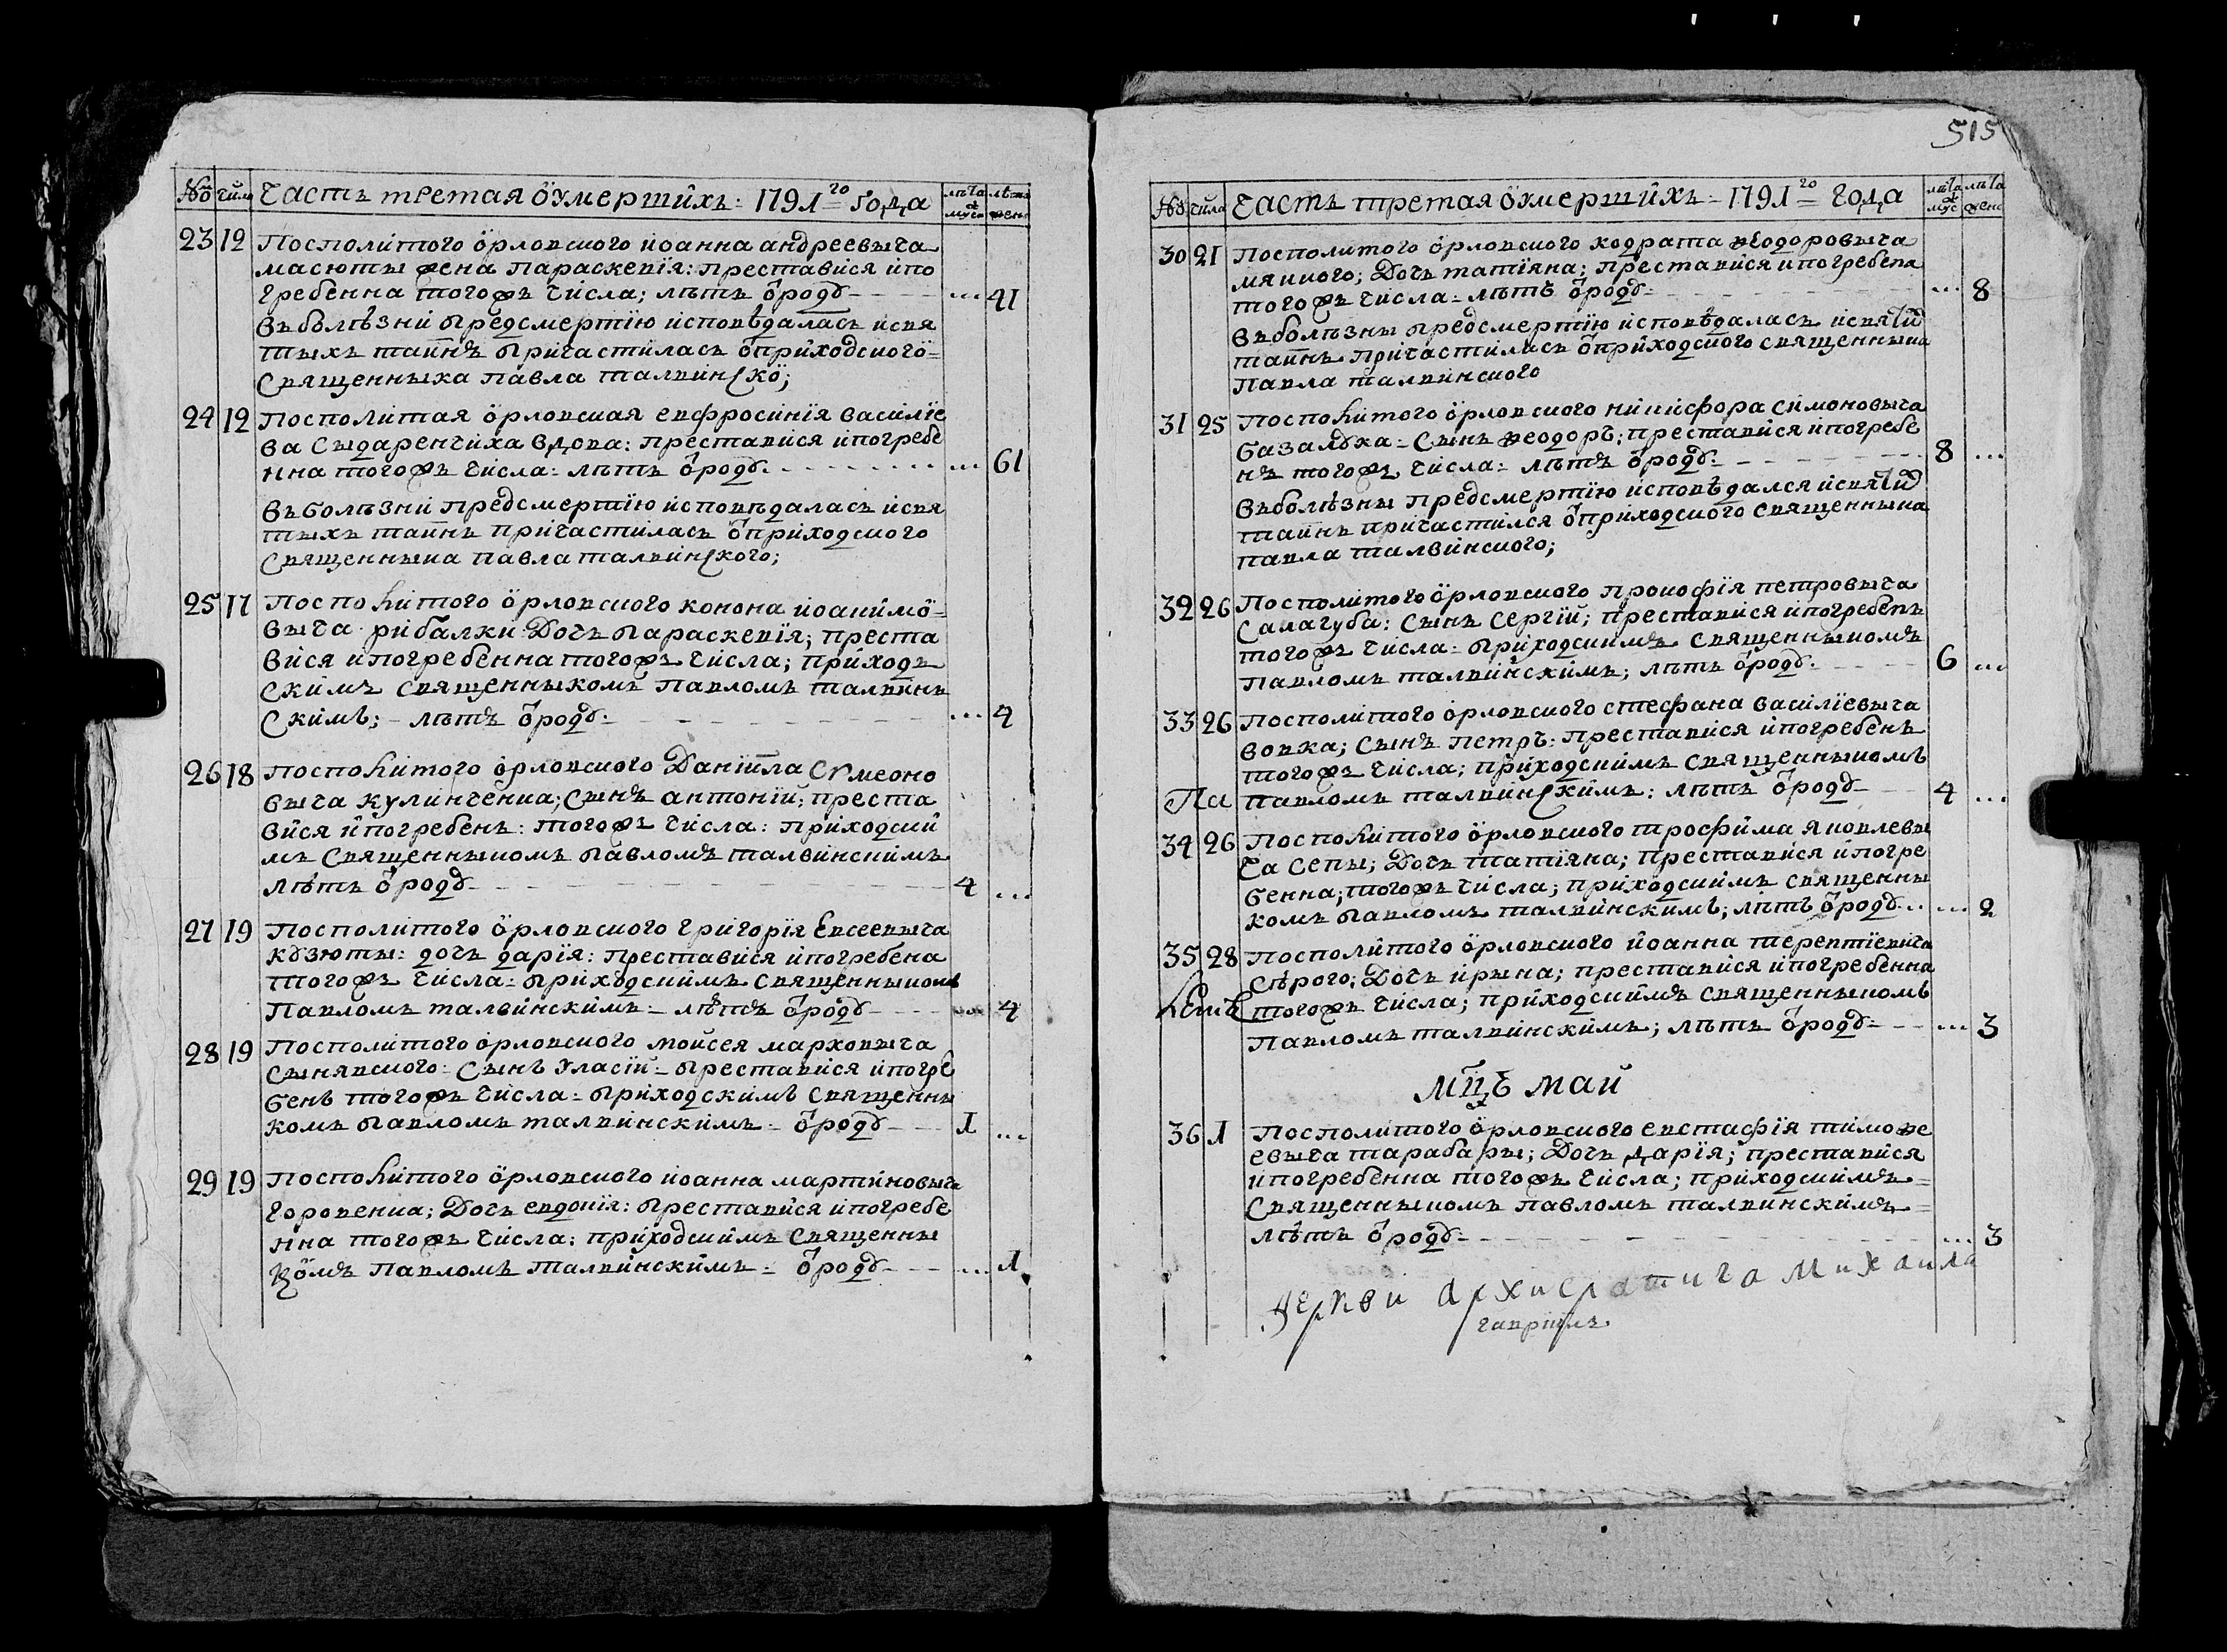 № числ Часть третая о умершихъ: 1791го года лѣта муск лѣта женс
23 12 Посполитого орловского иоанна андреевыча
масюты жена Параскевїя: преставися и по
гребенна того жъ числа; лѣтъ ѿ роду ... 41
Въ болѣзни предсмертїю исповѣдалась и свя
тыхъ таинъ причастилась ѿ приходского
священныка Павла талвинского;
24 12 Посполитая орловская евфросинїя василїе
ва Сыдаренчиха вдова: преставися и погребе
нна того жъ числа: лѣтъ ѿ роду ... 61
Въ болѣзни предсмертїю исповѣдалась и свя
тыхъ таинъ причастилась ѿ приходского
священныка павла талвинского;
25 17 Посполитого орловского конона иоакимо
выча рибалки: Дочь параскевїя; преста
вися и погребенна того жъ числа; приходъ
скимъ священныкомъ Павломъ талвинь
скимъ; лѣтъ ѿ роду ... 4
26 18 Посполитого орловского Данїила сѵмеоно
выча кулинченка; сынъ антонїй; преста
вися и погребенъ: того жъ числа: приходски
мъ священныкомъ павломъ талвинскимъ
лѣтъ ѿ роду 4 ...
27 19 Посполитого орловского григорїя Евсеевыча
кузюты: дочь дарїя: преставися и погребена
того жъ числа: приходскимъ священныкомъ
Павломъ талвинскимъ лѣтъ ѿ роду ... 4
28 19 Посполитого орловского мойсея марковыча
сынявского: Сынъ Уласїй преставися и погре
бенъ того жъ числа: приходскимъ священны
комъ павломъ талвинскимъ ѿ роду 1 ...
29 19 Посполитого орловского иоанна мартиновыча
горовенка; Дочь евдокїя: преставися и погребе
нна того жъ числа: приходскимъ священны
комъ Павломъ талвинскимъ ѿ роду ... 1
515
№ числа Часть третая о умершихъ 1791го года лѣта мус лѣта женс
30 21 Посполитого орловского кодрата ѳеодоровыча
мянкого; Дочь татїяна; преставися и погребена
того жъ числа лѣтъ ѿ роду ... 8
Въ болѣзны предсмертїю исповѣдалась и святих
таинъ причастилась ѿ приходского священныка
Павла талвинского
31 25 Посполитого орловского никифора симоновыча
базалука Сынъ ѳеодоръ; преставися и погребе
нъ того жъ числа: лѣтъ ѿ роду 8 ...
Въ болѣзны предсмертїю исповѣдался и святих
таинъ причастился ѿ приходского священныка
павла талвинского;
32 26 Посполитого орловского прокофїя петровыча
Салагуба: сынъ Сергїй; преставися и погребенъ
того жъ числа приходскимъ священныкомъ
Павломъ талвинскимъ; лѣтъ ѿ роду 6 ...
33 26 Посполитого орловского стефана василїевыча
вовка; сынъ петръ: преставися и погребенъ
того жъ числа; приходскимъ священныкомъ
павломъ талвинскимъ: лѣтъ ѿ роду 4 ...
34 26 Посполитого орловского трофима яковлевы
ча Сепы; Дочь татїяна; преставися и погре
бенна; того жъ числа; приходскимъ священны
комъ павломъ талвинскимъ; лѣтъ ѿ роду ... 2
35 28 Посполитого орловского иоанна терептїевича
сѣрого; Дочь ирына; преставися и погребенна
того жъ числа; приходскимъ священныкомъ
Павломъ талвинскимъ; лѣтъ ѿ роду ... 3
мцъ май
36 1 Посполитого орловского евстафїя тимоѳе
евыча тарабары; Дочь дарїя; преставися
и погребенна того жъ числа; приходскимъ
священныкомъ павломъ талвинскимъ
лѣтъ ѿ роду ... 3
Церкви архистратига Михаила
гавриилъ